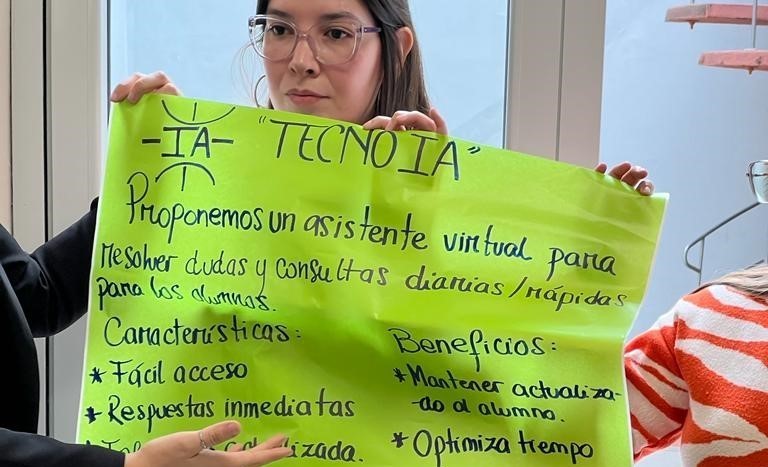 -IA- "TECNO IA"
Proponemos un asistente virtual para
resolver dudas y consultas diarias/rápidas
para los alumnos.
Características:
* Fácil acceso
* Respuestas inmediatas
Beneficios:
* Mantener actualiza-
-do al alumno.
* Optimiza tiempo